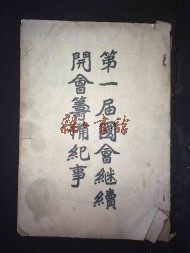 第一届國會繼續
開會籌補紀事